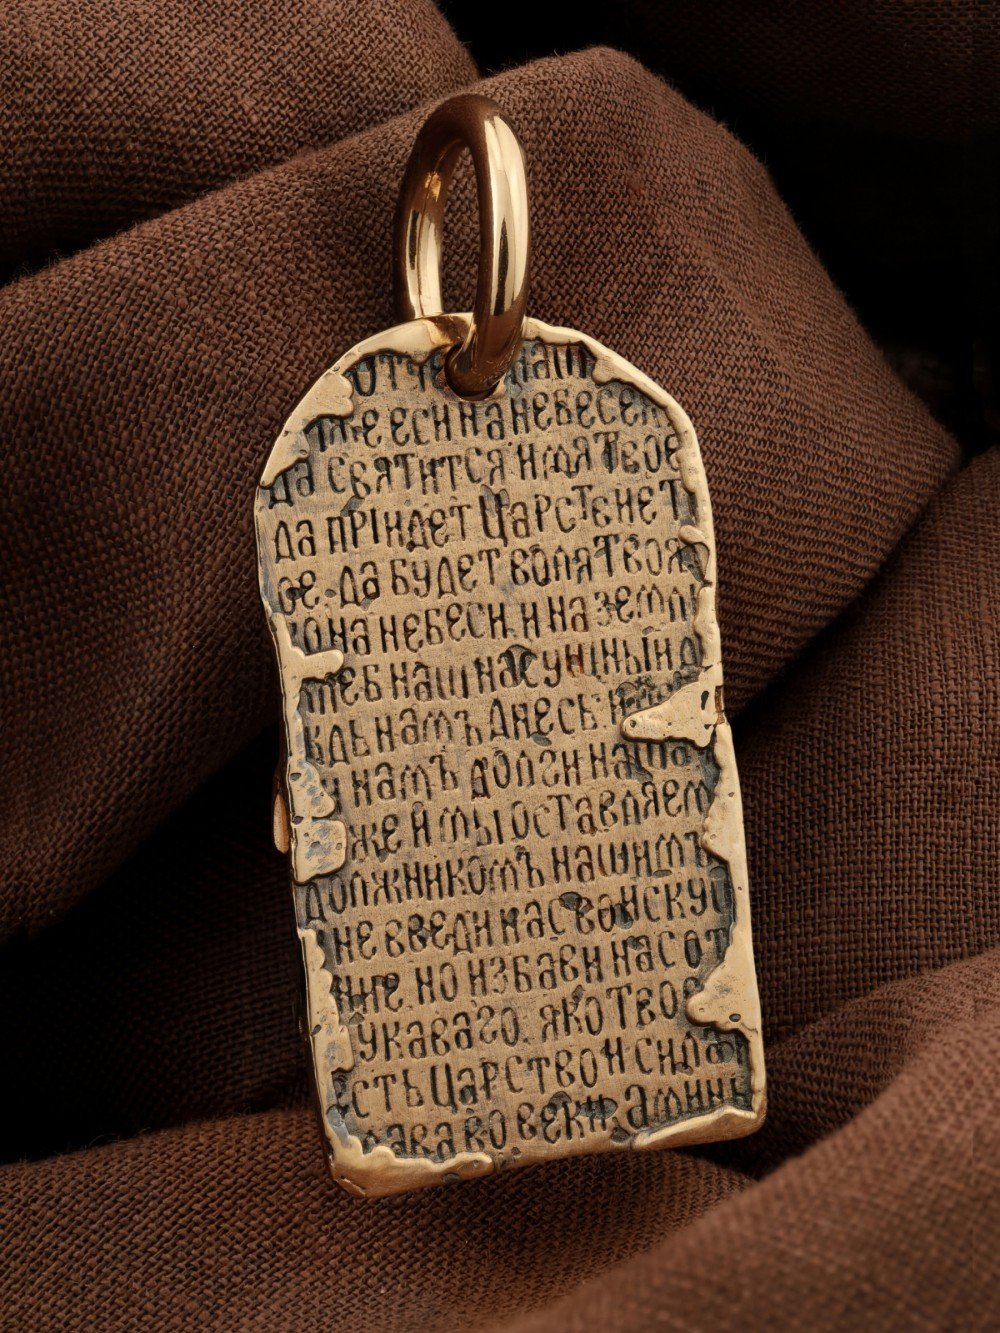 ОТЧЕ НАШ
ИЖЕ ЕСИ НА НЕБЕСЕХ
ДА СВЯТИТСЯ ИМЯ ТВОЕ
ДА ПРІИДЕТ ЦАРСТЕНЕ Т
ОЕ. ДА БУДЕТ ВОЛЯ ТВОЯ
КО НА НЕБЕСИ. И НА ЗЕМЛИ
ЛЕБ НАШ НАСУЩНЫЙ Д
ЖДЬ НАМЪ ДНЕСЬ.
И НАМЪ ДОЛГИ НАША
ЖЕ И МЫ ОСТАВЛЯЕМ
ДОЛЖНИКОМЪ НАШИМЪ
НЕ ВВЕДИ НАС ВО ИСКУШ
НИЕ. НО ИЗБАВИ НАС ОТ
УКАВАГО. ЯКО ТВОЕ
ЕСТЬ ЦАРСТВО И СИЛА
ЛАВА ВО ВЕКИ. АМИНЬ